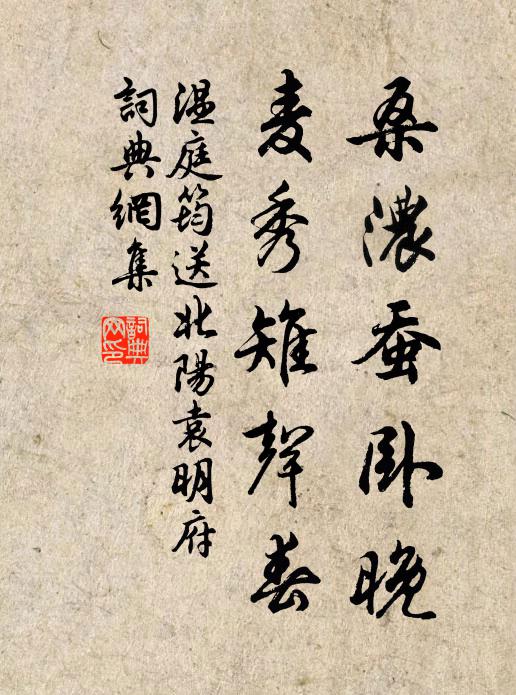 桑濃蚕卧晚
麦秀雉聲春
温庭筠送北陽袁明府
詞典網集
詞典網印